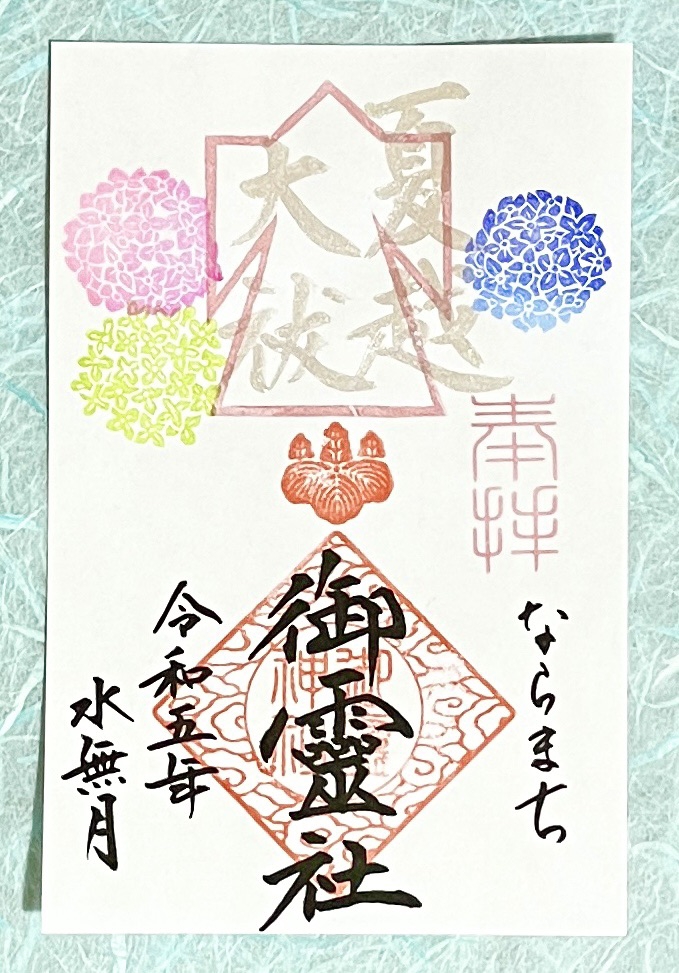 夏越
大祓
奉拝
ならまち
御靈社
令和五年
水無月